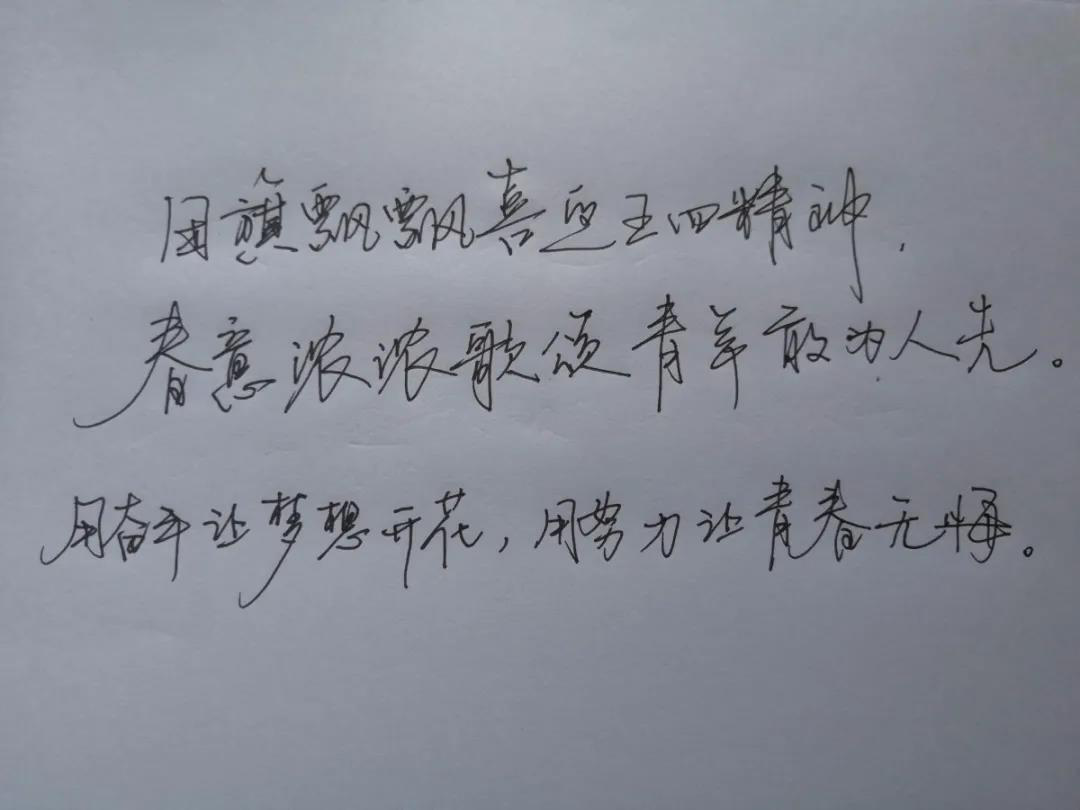 团旗飘飘喜迎五四精神,
春意浓浓歌颂青年敢为人先。
用奋斗让梦想开花,用努力让青春无悔。